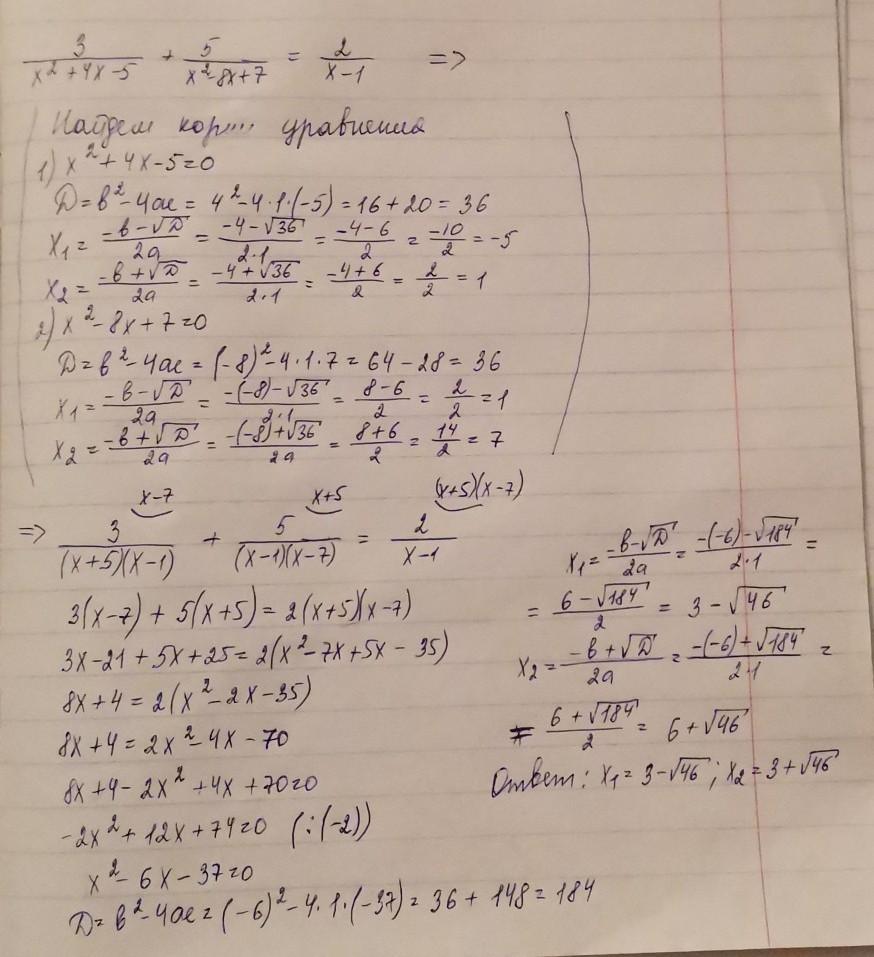 3/(x²+4x-5) + 5/(x²-8x+7) = 2/(x-1) =>
Найдем уравнения
1) x²+4x-5=0
D=b²-4ac = 4²-4·1·(-5) = 16+20 = 36
x₁ = (-b-√D)/2a = (-4-√36)/2·1 = (-4-6)/2 = -10/2 = -5
x₂ = (-b+√D)/2a = (-4+√36)/2·1 = (-4+6)/2 = 2/2 = 1
2) x²-8x+7=0
D=b²-4ac = (-8)²-4·1·7 = 64-28 = 36
x₁ = (-b-√D)/2a = (-(-8)-√36)/2·1 = (8-6)/2 = 2/2 = 1
x₂ = (-b+√D)/2a = (-(-8)+√36)/2a = (8+6)/2 = 14/2 = 7
x-7 x+5 (x+5)(x-7)
=> 3/((x+5)(x-1)) + 5/((x-1)(x-7)) = 2/(x-1)
3(x-7) + 5(x+5) = 2(x+5)(x-7)
3x-21+5x+25=2(x²-7x+5x-35)
8x+4=2(x²-2x-35)
8x+4=2x²-4x-70
8x+4-2x²+4x+70=0
-2x²+12x+74=0 (:(-2))
x²-6x-37=0
D=b²-4ac=(-6)²-4·1·(-37)=36+148=184
x₁ = (-b-√D)/2a = (-(-6)-√184)/2·1 =
= (6-√184)/2 = 3-√46
x₂ = (-b+√D)/2a = (-(-6)+√184)/2·1 =
= (6+√184)/2 = 6+√46
Ответ: x₁=3-√46; x₂=3+√46